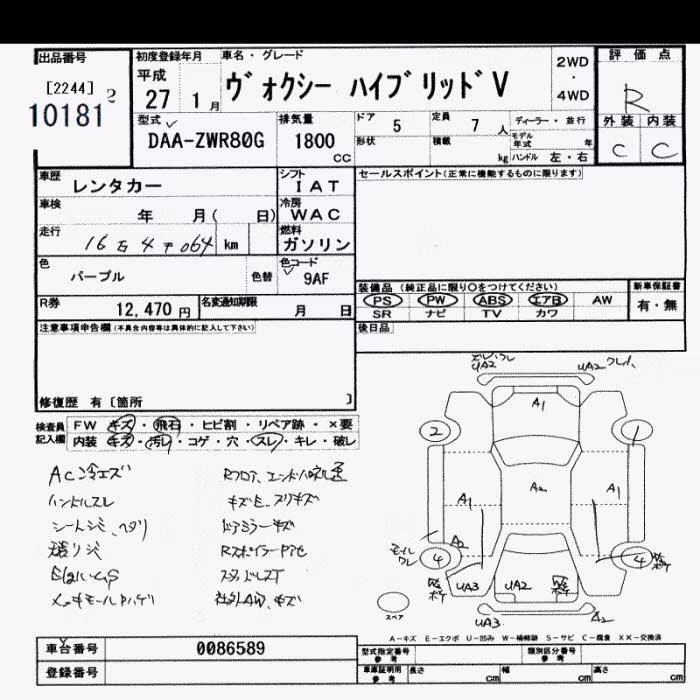 出品番号
[2244]
10181 2
初度登録年月
平成
27 1月
車名・グレード
ヴォクシー ハイブリッドV
2WD
・
4WD
評価点
R
外装 内装
C C
型式
DAA-ZWR80G
排気量
1800
CC
ドア 5
形状
定員 7 人
積載 kg
ディーラー・並行
モデル年式 年
ハンドル 左・右
車歴
レンタカー
車検
年 月( 日)
走行
16万4千064 km
色
パープル
色替
シフト
IAT
冷房
WAC
燃料
ガソリン
色コード
9AF
R券
12,470 円
名変通知期限
月 日
セールスポイント(正常に機能するものに限ります)
装備品(純正品に限り○をつけてください)
PS PW ABS エアB AW
SR ナビ TV カワ
新車保証書
有・無
後日品
注意事項申告欄(不具合内容等は具体的に記入して下さい)
修復歴 有〔箇所 〕
検査員
記入欄
FW キズ・飛石・ヒビ割・リペア跡・×要
内装 キズ・汚レ・コゲ・穴・スレ・キレ・破レ
AC冷エズ
ハンドルスレ
シートシミ、ヘタリ
Rフロア、エンドパネル歪
キズE、スリキズ
ドアミラーキズ
スタッドレスT
社外AW、キズ
メッキモールハゲ
UA2
UA2
A1
2
1
A1
A2
A1
A2
モールワレ
4
4
UA3
UA2
W
UA3
A2
スペア
A-キズ E-エクボ U-凹み W-補修跡 S-サビ C-腐食 XX-交換済
車台番号
0086589
登録番号
型式指定番号
参考
類別区分番号
参考
車庫証明用
参考
長さ cm
幅 cm
高さ cm